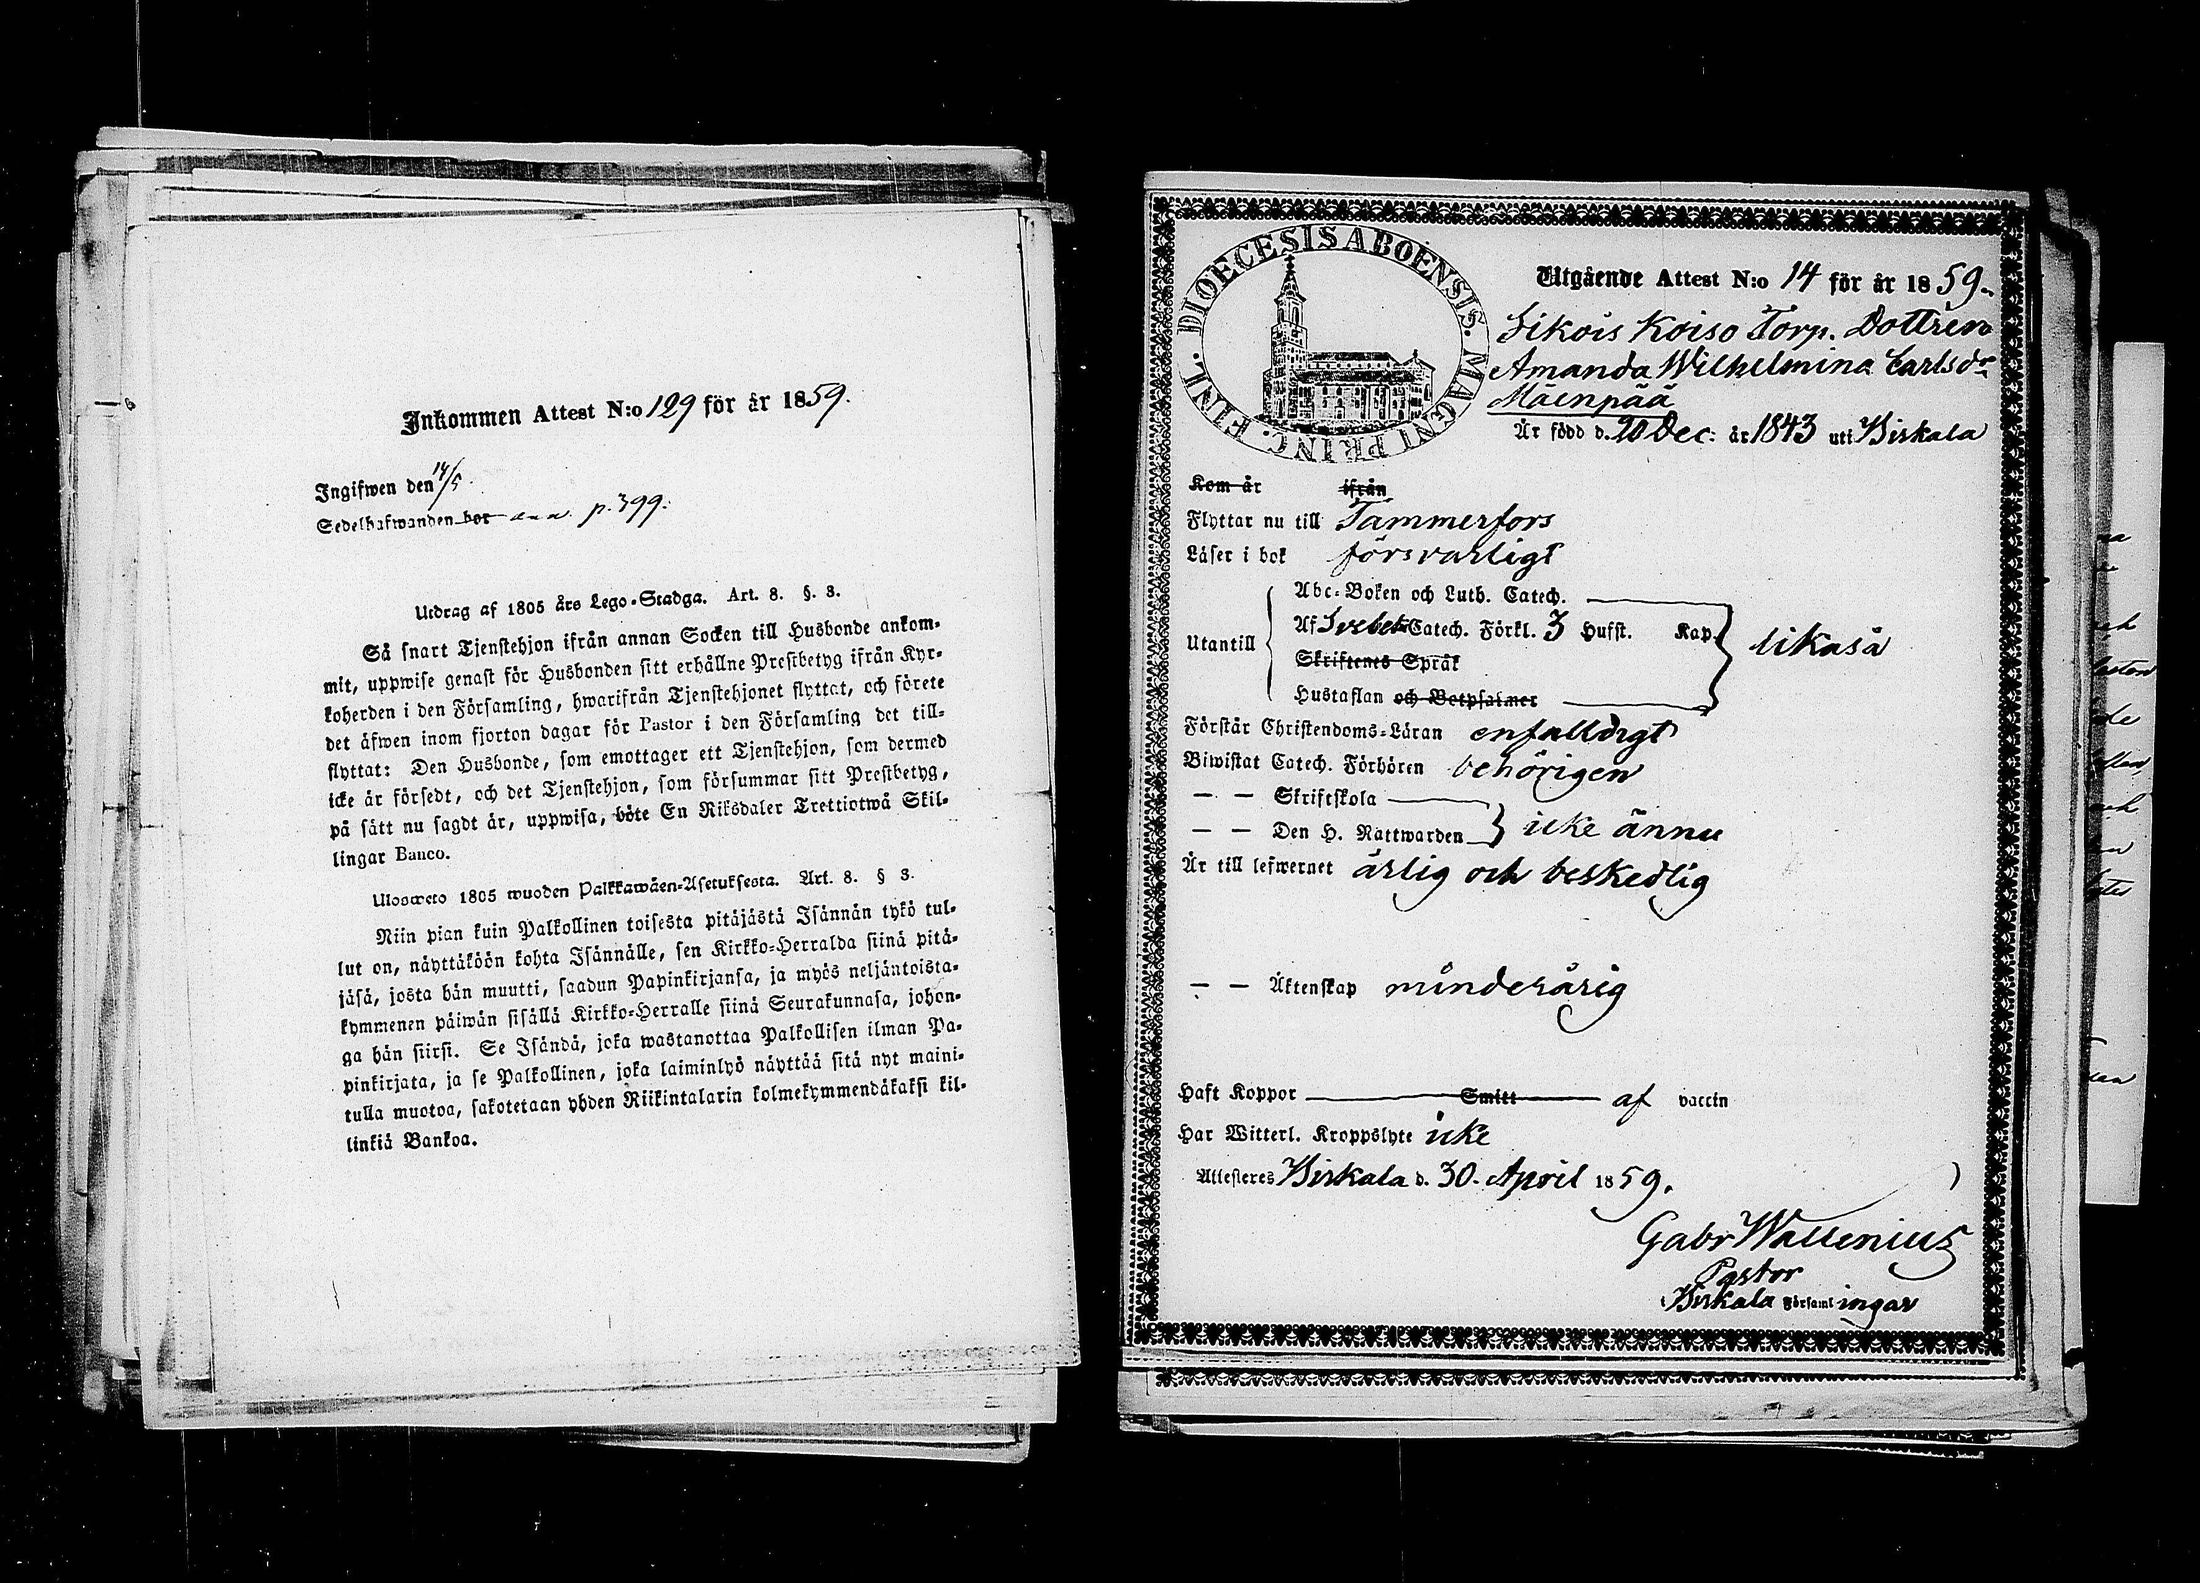 Inkommen Attest N:o 129 för år 1859.
Ingifwen den 14/5.
Sedelhafwanden bor ann. p. 399.
Utdrag af 1805 års Lego-Stadga. Art. 8. §. 3.
Så snart Tjenstehjon ifrån annan Socken till Husbonde ankom-
mit, uppwise genast för Husbonden sitt erhållne Prestbetyg ifrån Kyr-
koherden i den Församling, hwarifrån Tjenstehjonet flyttat, och förete
det äfwen inom fjorton dagar för Pastor i den Församling det till-
flyttat: Den Husbonde, som emottager ett Tjenstehjon, som dermed
icke är försedt, och det Tjenstehjon, som försummar sitt Prestbetyg,
på sätt nu sagdt är, uppwisa, böte En Riksdaler Trettiotwå Skil-
lingar Banco.
Uloswето 1805 wuoden Palkkawäen-Asetuksesta. Art. 8. § 3.
Niin pian kuin Palkollinen toisesta pitäjästä Isännän tykö tul-
lut on, näyttäköön kohta Isännälle, sen Kirkko-Herralda siinä pitä-
jäsä, josta hän muutti, saadun Papinkirjansa, ja myös neljäntoista-
kymmenen päiwän sisällä Kirkko-Herralle siinä Seurakunnasa, johon-
ga hän siirsi. Se Isändä, joka wastanottaa Palkollisen ilman Pa-
pinkirjata, ja se Palkollinen, joka laiminlyö näyttää sitä nyt maini-
tulla muotoa, sakotetaan yhden Riikintalarin kolmekymmendäkaksi kil-
linkiä Bankoa.
DIOECESIS ABOENSIS. MAGNI PRINC. FINL.
Utgående Attest N:o 14 för år 1859.
Sikois Koiso Torp. Dottren
Amanda Wilhelmina Carlsdr
Mäenpää
Är född d. 20 Dec: år 1843 uti Birkala
Kom år ifrån
Flyttar nu till Tammerfors
Läser i bok försvarligt
Abc-Boken och Luth. Catech.
Utantill Af Svebel. Catech. Förkl. 3 Hufst. Kap. likaså
Skriftenes Språk
Hustaflan och Botpsalmer
Förstår Christendoms-Läran enfalldigt
Biwistat Catech. Förhören behörigen
— — Skriftskola
— — Den H. Nattwarden icke ännu
Är till lefwernet ärlig och beskedlig
— — Äktenskap minderårig
Haft Koppor Smitt af vaccin
Har Witterl. Kroppslyte icke
Attesteres Birkala d. 30. April 1859.
Gabr Wallenius
Pastor
i Birkala Församlingar